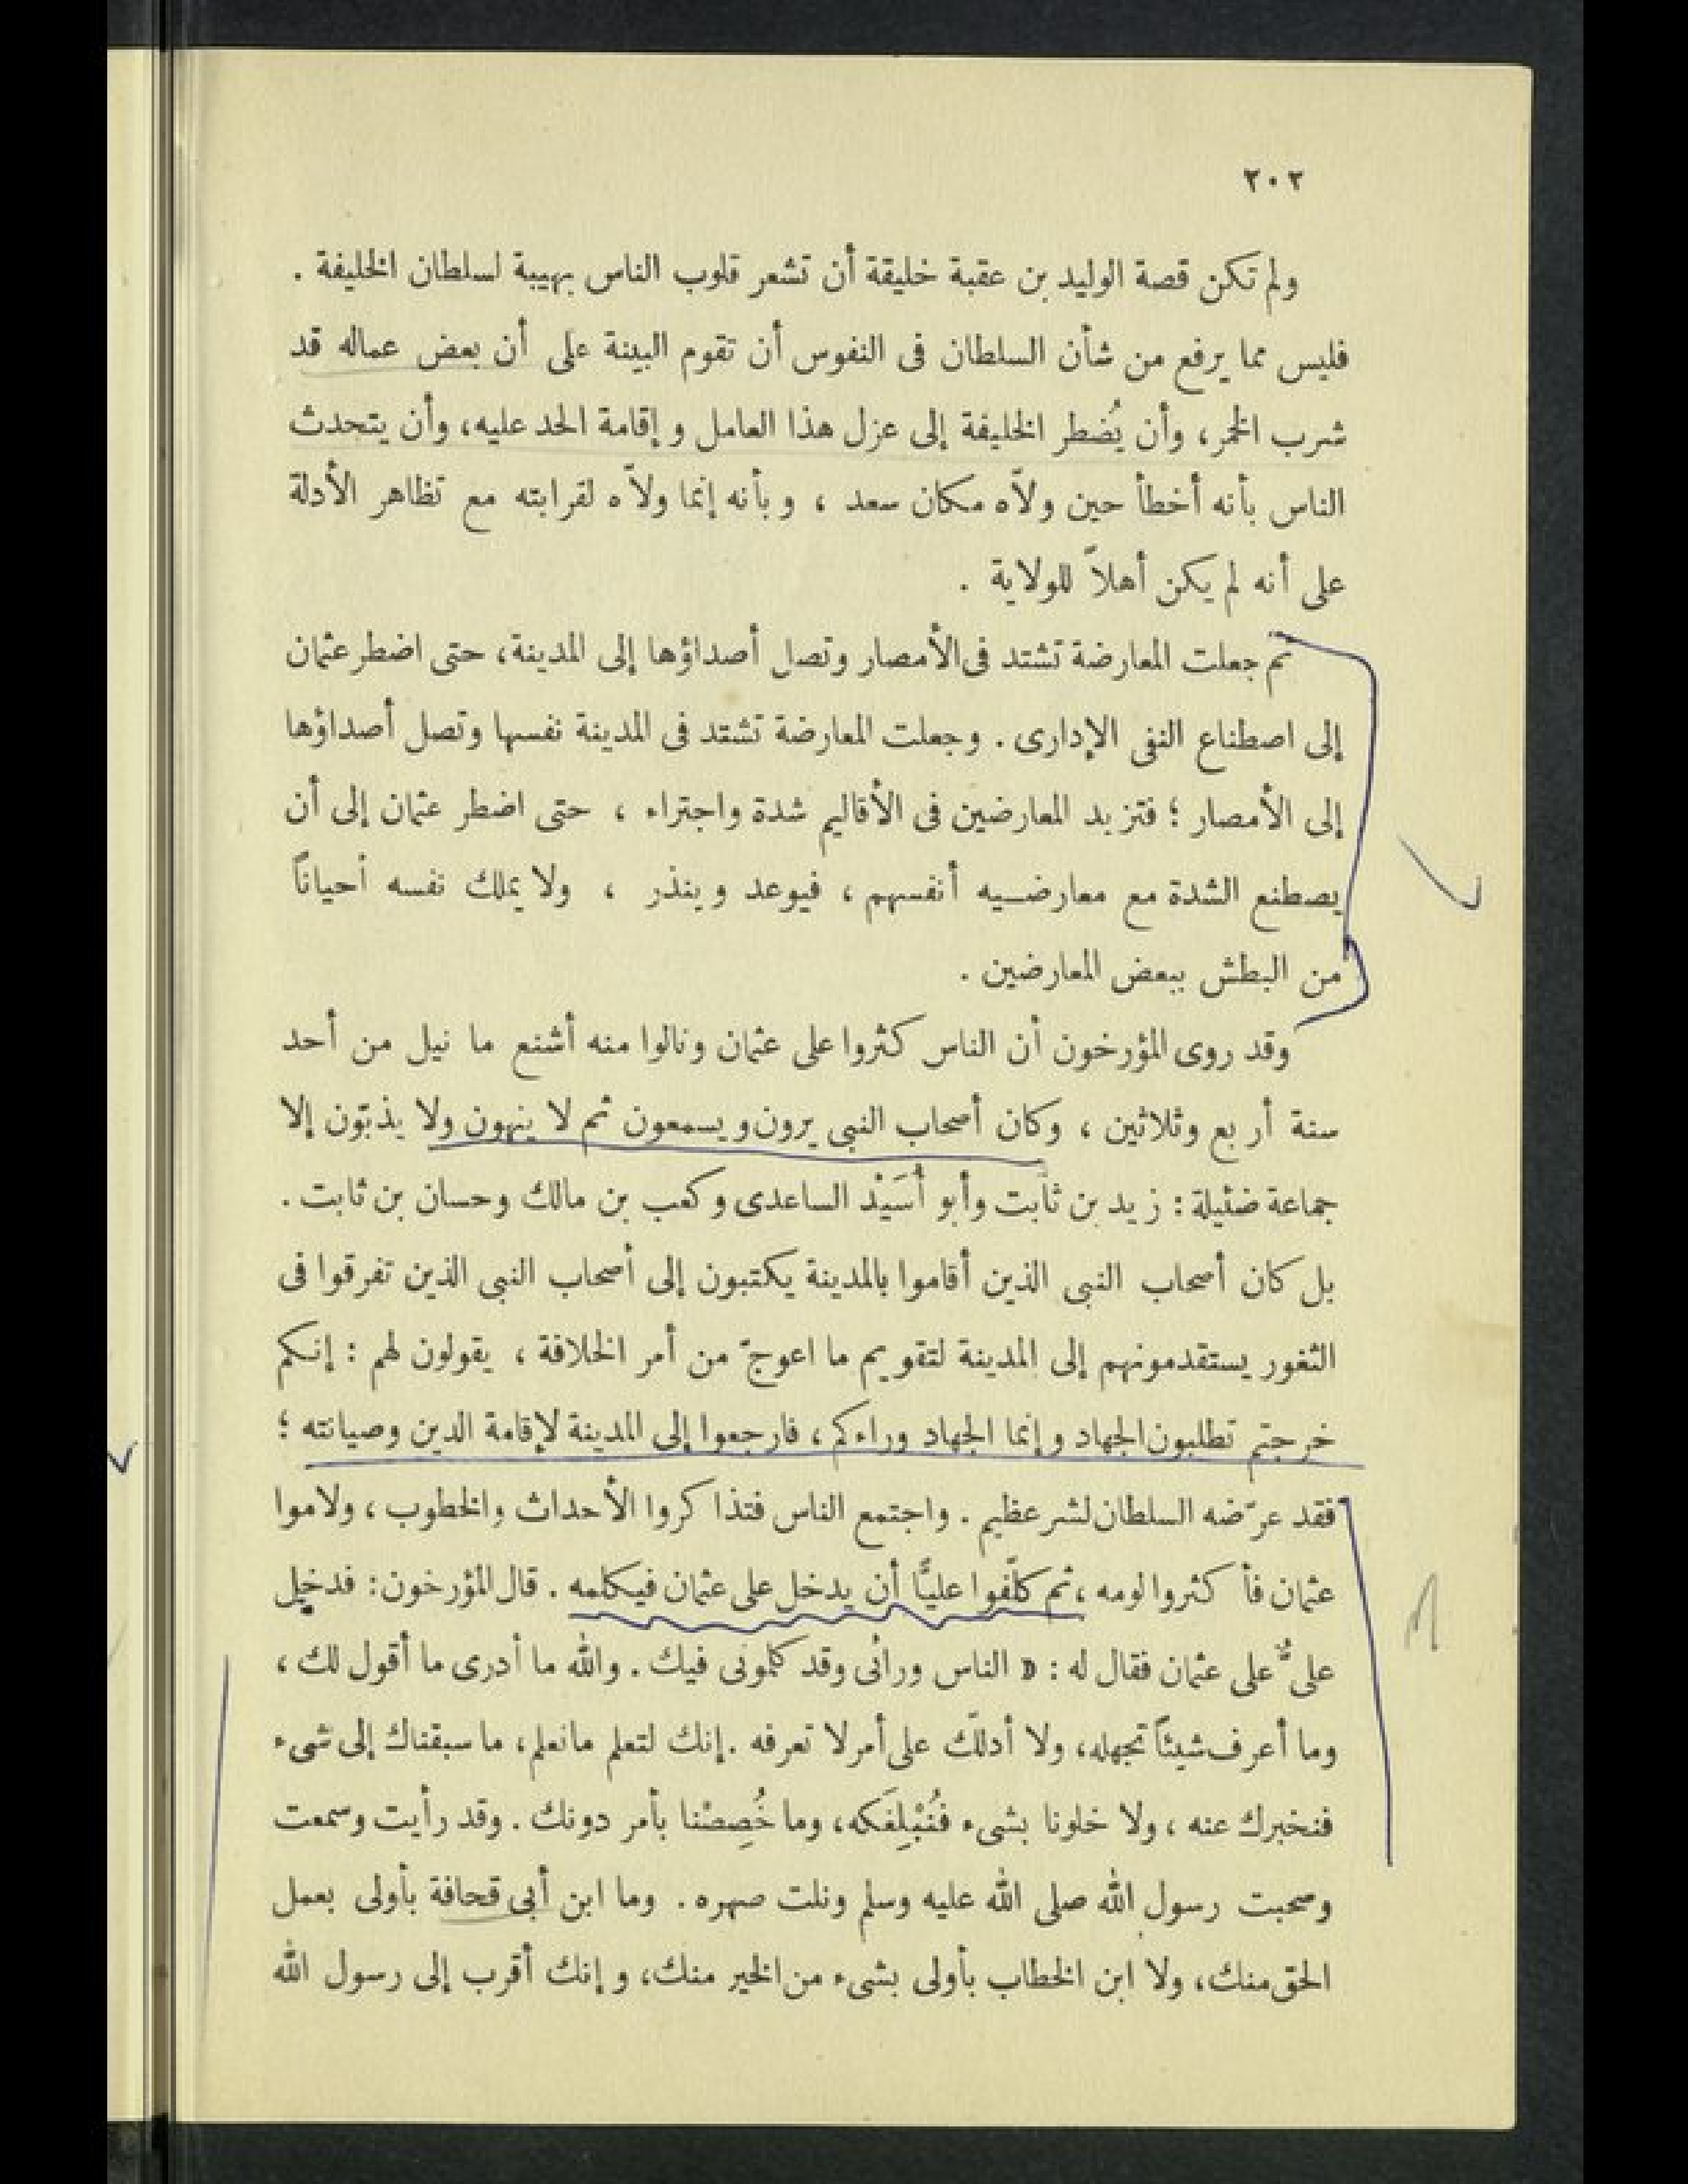 ٢٠٢
ولم تكن قصة الوليد بن عقبة خليقة أن تشعر قلوب الناس بهيبة لسلطان الخليفة .
فليس مما يرفع من شأن السلطان فى النفوس أن تقوم البينة على أن بعض عماله قد
شرب الخمر، وأن يُضطر الخليفة إلى عزل هذا العامل وإقامة الحد عليه، وأن يتحدث
الناس بأنه أخطأ حين ولاّه مكان سعد ، وبأنه إنما ولاّه لقرابته مع تظاهر الأدلة
على أنه لم يكن أهلاً للولاية .
ثم جعلت المعارضة تشتد فى الأمصار وتصل أصداؤها إلى المدينة، حتى اضطر عثمان
إلى اصطناع النفى الإدارى . وجعلت المعارضة تشتد فى المدينة نفسها وتصل أصداؤها
إلى الأمصار ؛ فتزيد المعارضين فى الأقاليم شدة واجتراء ، حتى اضطر عثمان إلى أن
يصطنع الشدة مع معارضـيه أنفسهم ، فيوعد وينذر ، ولا يملك نفسه أحياناً
من البطش ببعض المعارضين .
وقد روى المؤرخون أن الناس كثروا على عثمان ونالوا منه أشنع ما نيل من أحد
سنة أربع وثلاثين ، وكان أصحاب النبى يرون ويسمعون ثم لا ينهون ولا يذبّون إلا
جماعة ضئيلة : زيد بن ثابت وأبو أُسَيْد الساعدى وكعب بن مالك وحسان بن ثابت .
بل كان أصحاب النبى الذين أقاموا بالمدينة يكتبون إلى أصحاب النبى الذين تفرقوا فى
الثغور يستقدمونهم إلى المدينة لتقويم ما اعوجّ من أمر الخلافة ، يقولون لهم : إنـكم
خرجتم تطلبون الجهاد وإنما الجهاد وراءكم ، فارجعوا إلى المدينة لإقامة الدين وصيانته ؛
فقد عرّضه السلطان لشر عظيم . واجتمع الناس فتذاكروا الأحداث والخطوب ، ولاموا
عثمان فأكثروا لومه ، ثم كلّفوا عليًّا أن يدخل على عثمان فيكلمه . قال المؤرخون : فدخل
علىٌّ على عثمان فقال له : « الناس ورائى وقد كلمونى فيك . والله ما أدرى ما أقول لك ،
وما أعرف شيئاً تجهله، ولا أدلّك على أمر لا تعرفه . إنك لتعلم ما نعلم، ما سبقناك إلى شىء
فنخبرك عنه ، ولا خلونا بشىء فنُبْلِغَكه، وما خُصِصْنا بأمر دونك . وقد رأيت وسمعت
وصحبت رسول الله صلى الله عليه وسلم ونلت صهره . وما ابن أبى قحافة بأولى بعمل
الحق منك، ولا ابن الخطاب بأولى بشىء من الخير منك، وإنك أقرب إلى رسول الله